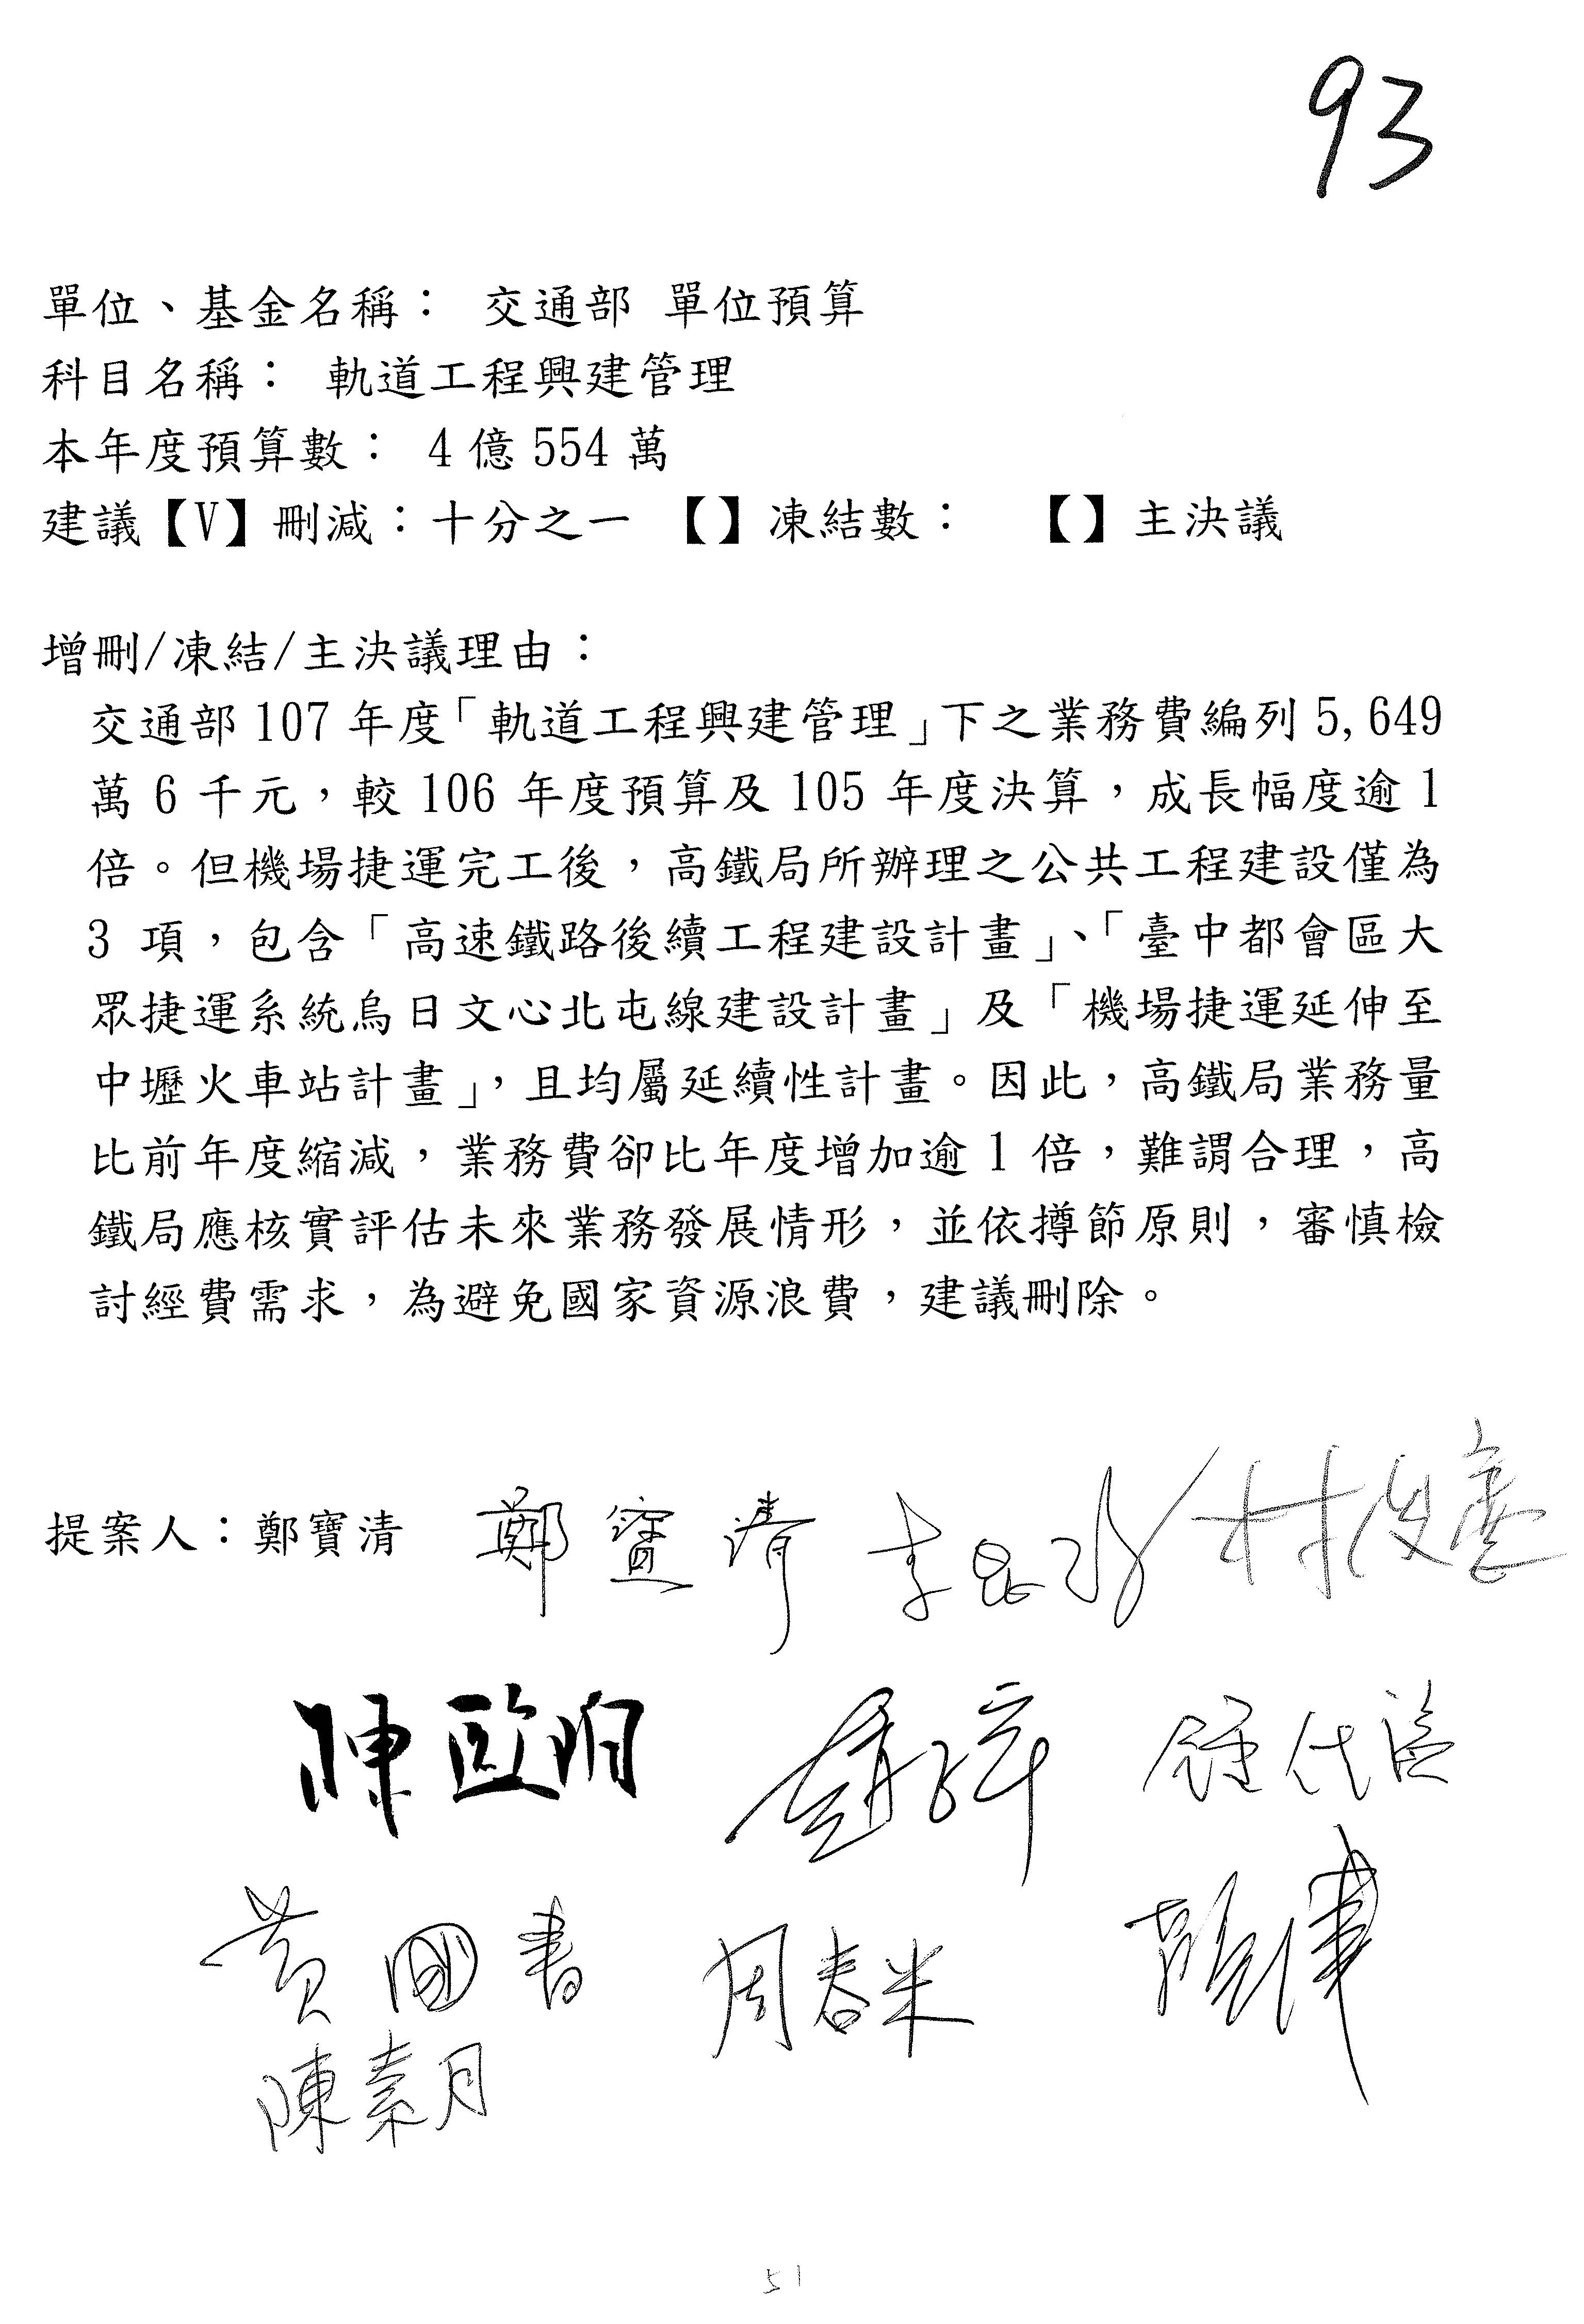 93
單位、基金名稱： 交通部 單位預算
科目名稱： 軌道工程興建管理
本年度預算數： 4 億 554 萬
建議【V】刪減：十分之一 【】凍結數： 【】主決議
增刪/凍結/主決議理由：
交通部 107 年度「軌道工程興建管理」下之業務費編列 5,649
萬 6 千元，較 106 年度預算及 105 年度決算，成長幅度逾 1
倍。但機場捷運完工後，高鐵局所辦理之公共工程建設僅為
3 項，包含「高速鐵路後續工程建設計畫」、「臺中都會區大
眾捷運系統烏日文心北屯線建設計畫」及「機場捷運延伸至
中壢火車站計畫」，且均屬延續性計畫。因此，高鐵局業務量
比前年度縮減，業務費卻比年度增加逾 1 倍，難謂合理，高
鐵局應核實評估未來業務發展情形，並依撙節原則，審慎檢
討經費需求，為避免國家資源浪費，建議刪除。
提案人：鄭寶清 鄭寶清 李昆澤 林俊憲
陳歐珀 鍾佳濱
黃國書 周春米
陳素月
51